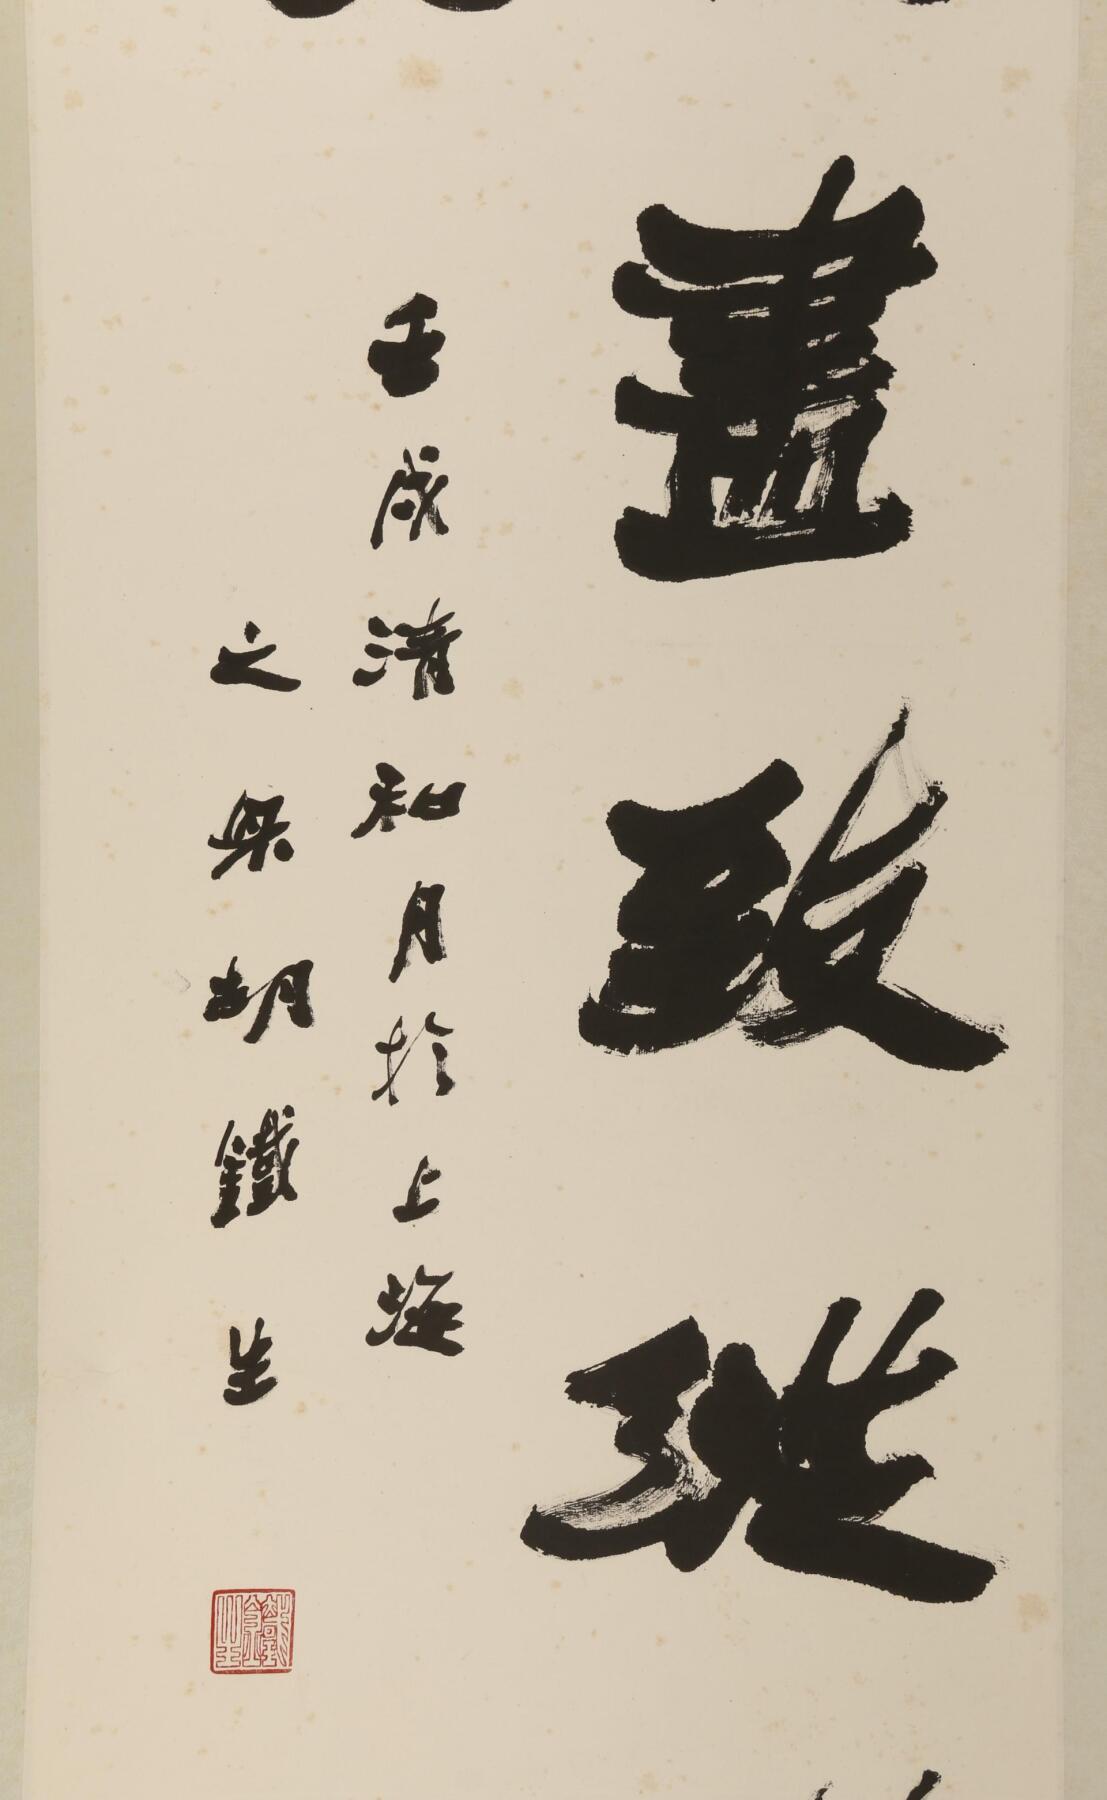 盡致璇
壬戌清和月於上海
之樂胡鐵生
鐵生